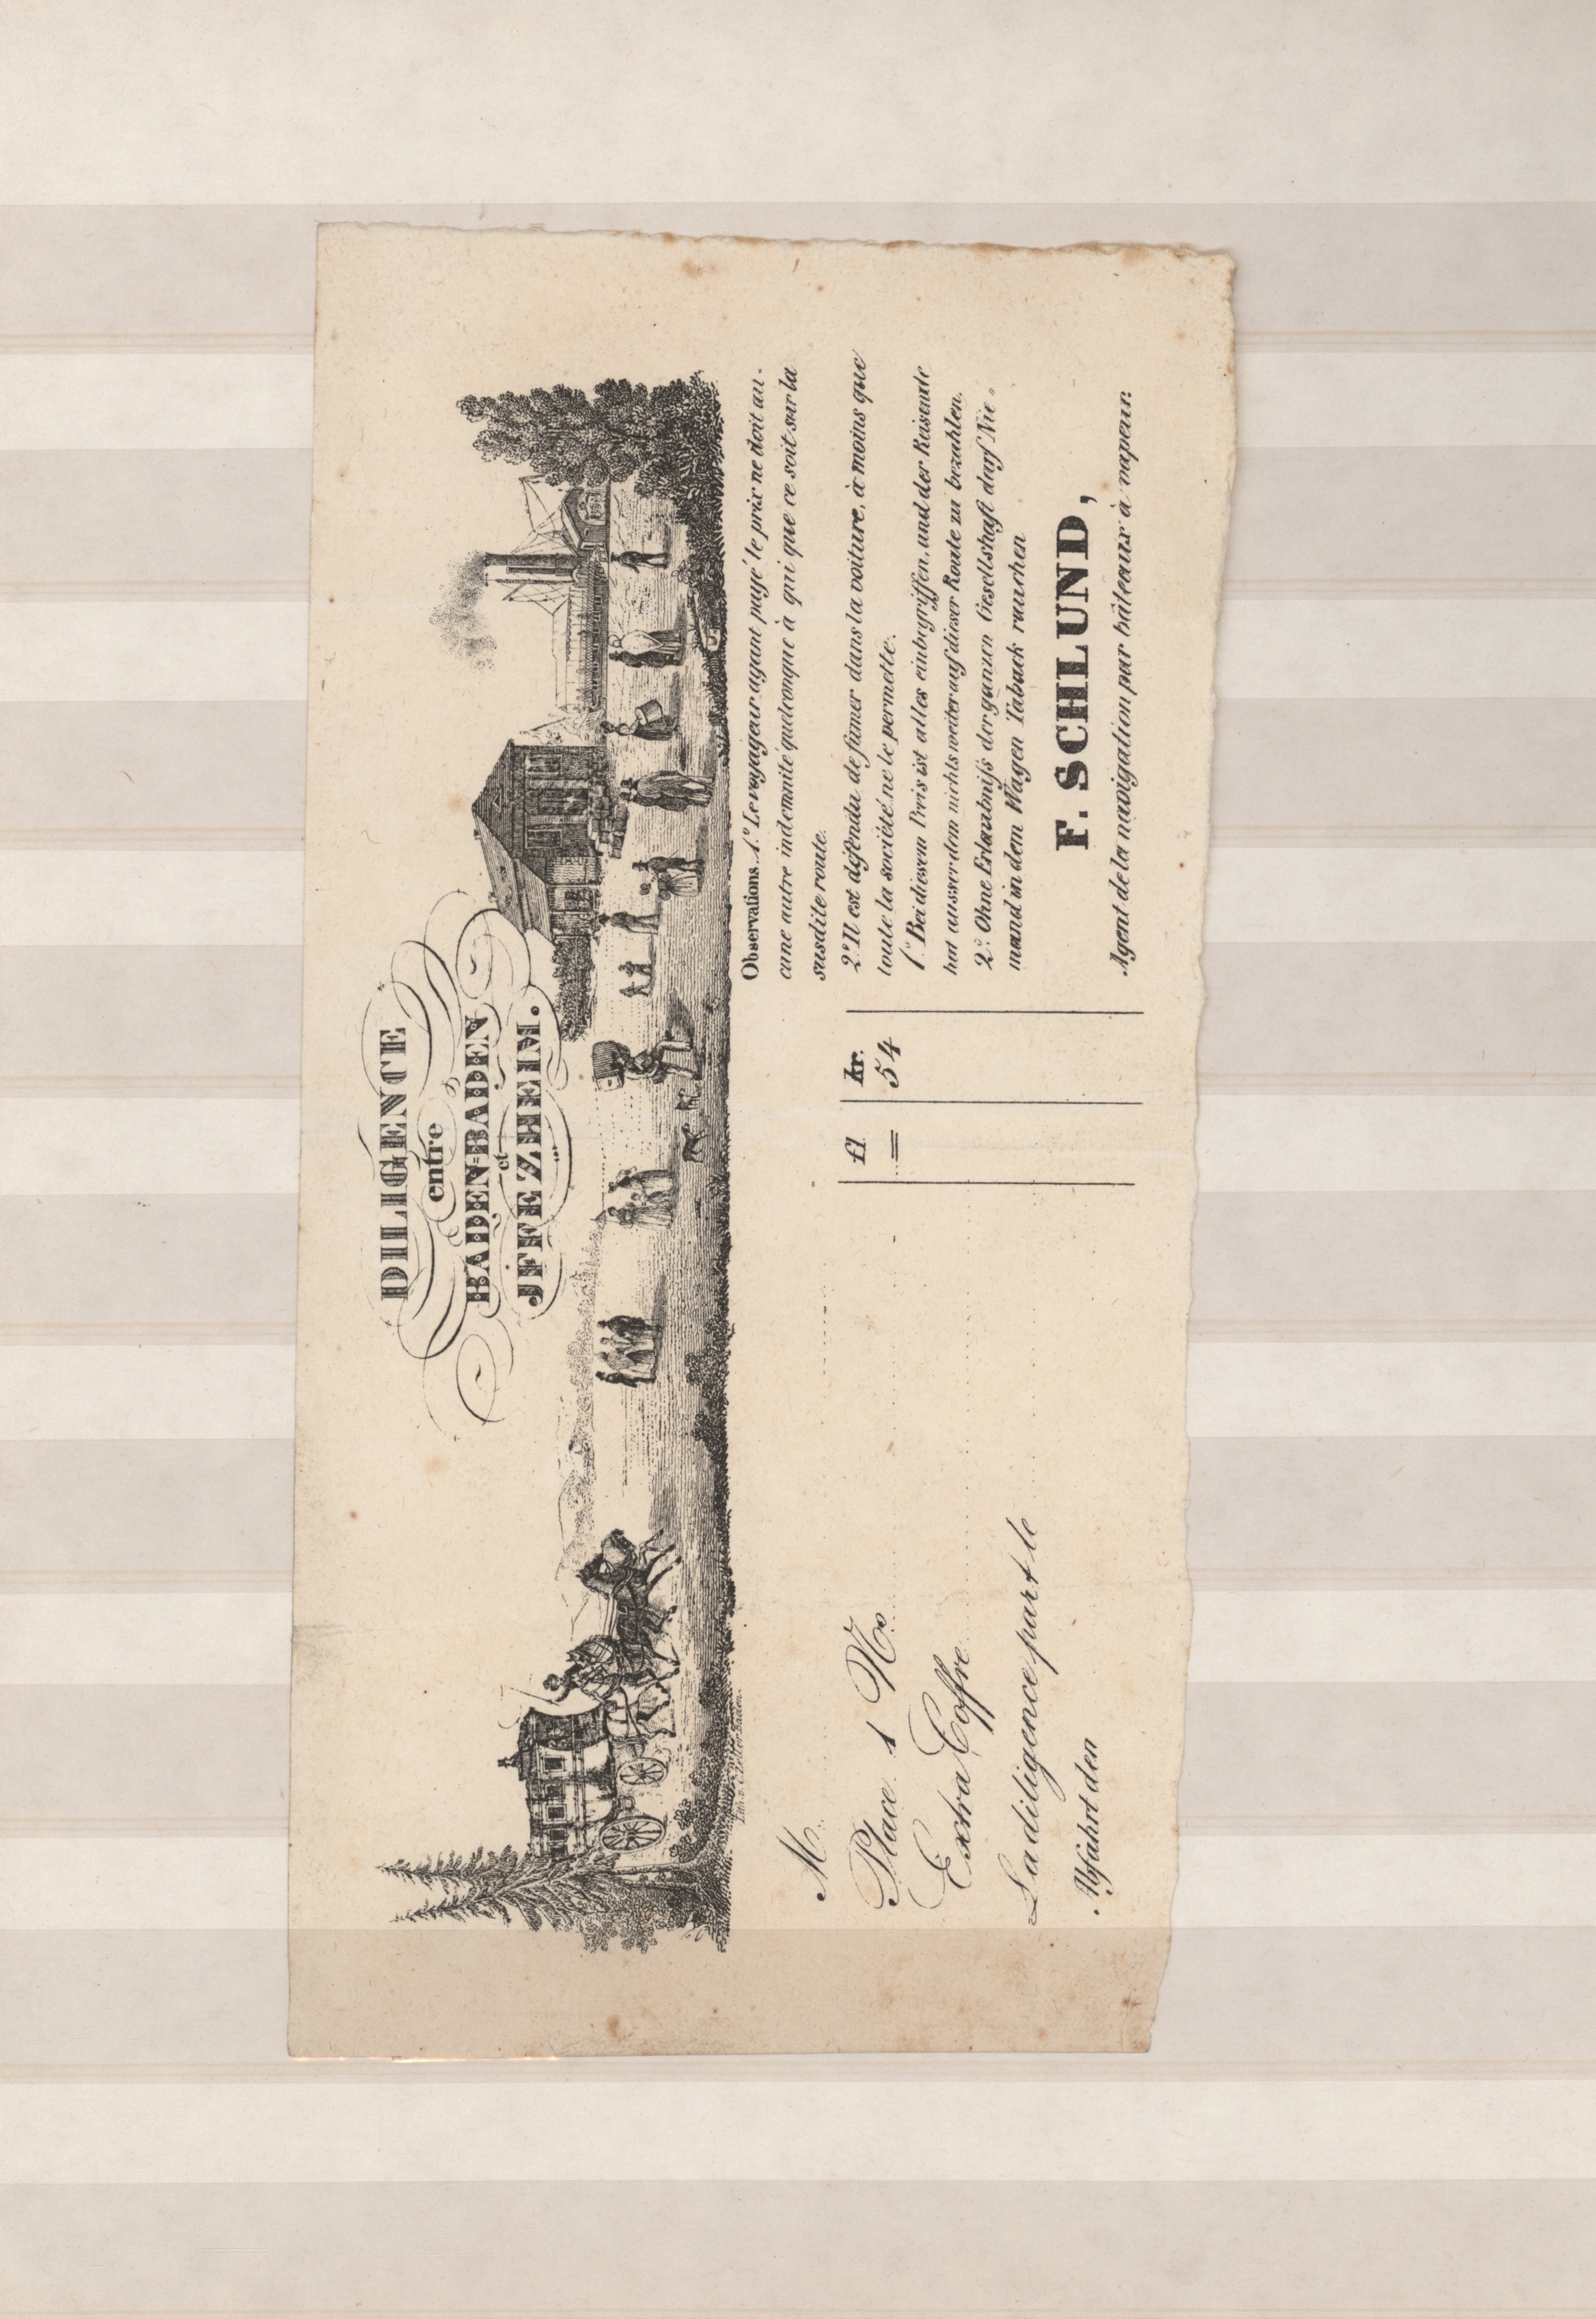 DILIGENCE
entre
BADEN-BADEN
et
JFFEZHEIM.
M.
Place 1 No
Extra Coffre
La diligence part le
Abfahrt den
fl kr.
= 54
Observations. 1.° Le voyageur ayant payé le prix ne doit au-
cune autre indemnité quelconque à qui que ce soit sur la
susdite route.
2.° Il est défendu de fumer dans la voiture, à moins que
toute la société ne le permette.
1.° Bei diesem Preis ist alles einbegriffen, und der Reisende
hat ausserdem nichts weiter auf dieser Route zu bezahlen.
2.° Ohne Erlaubniſs der ganzen Gesellshaft darf Nie-
mand in dem Wagen Taback rauchen
F. SCHLUND,
Agent de la navigation par bâteaux à vapeur.